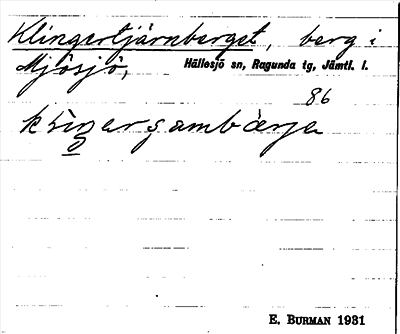 Klingertjärnberget, berg i
Mjösjö, Hällesjö sn, Ragunda tg, Jämtl. l.
86
E. BURMAN 1931